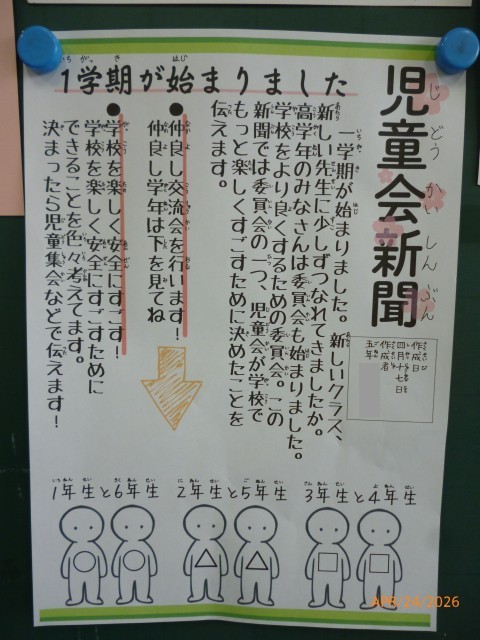 児童会新聞
作成日
四月十七日
作成者
五年
1学期が始まりました
一学期が始まりました。新しいクラス、
新しい先生に少しずつなれてきましたか。
高学年のみなさんは委員会も始まりました。
学校をより良くするための委員会。この
新聞では委員会の一つ、児童会が学校で
もっと楽しくすごすために決めたことを
伝えます。
●仲良し交流会を行います!
仲良し学年は下を見てね
●学校を楽しく安全にすごす!
学校を楽しく安全にすごすために
できることを色々考えてます。
決まったら児童集会などで伝えます!
1年生と6年生
2年生と5年生
3年生と4年生
APR/24/2026